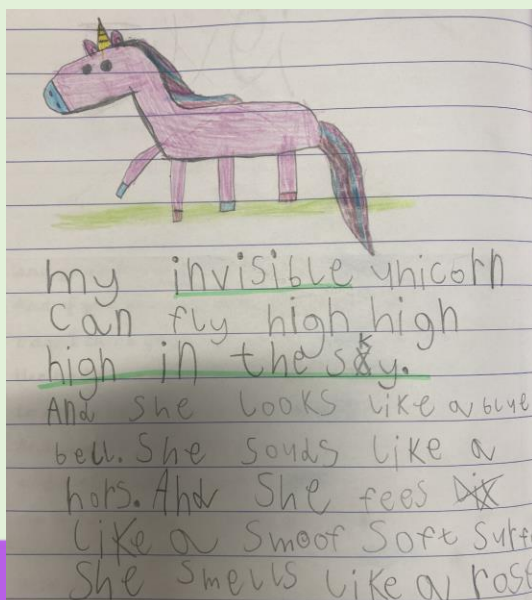 my invisible unicorn
can fly high high
high in the sky.
And she looks like a blue
bell. She souds like a
hors. And She fees
like a smoof soft surf
She smells like a rose